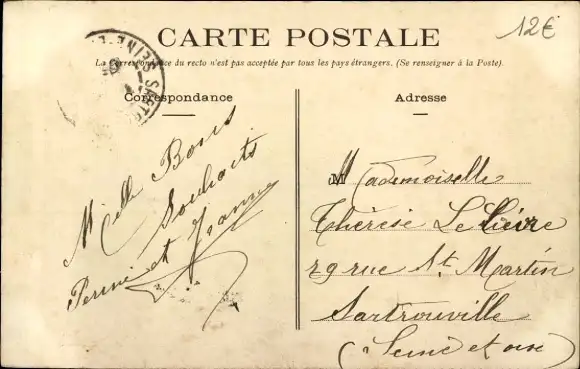 12€
CARTE POSTALE
La Correspondance du recto n'est pas acceptée par tous les pays étrangers. (Se renseigner à la Poste).
Correspondance
Mille Bons
Souhaits
et Jeanne
Adresse
Mademoiselle
Thérèse Lelièvre
29 rue St. Martin
Sartrouville
(Seine et oise)
SARTR
SEINE-E